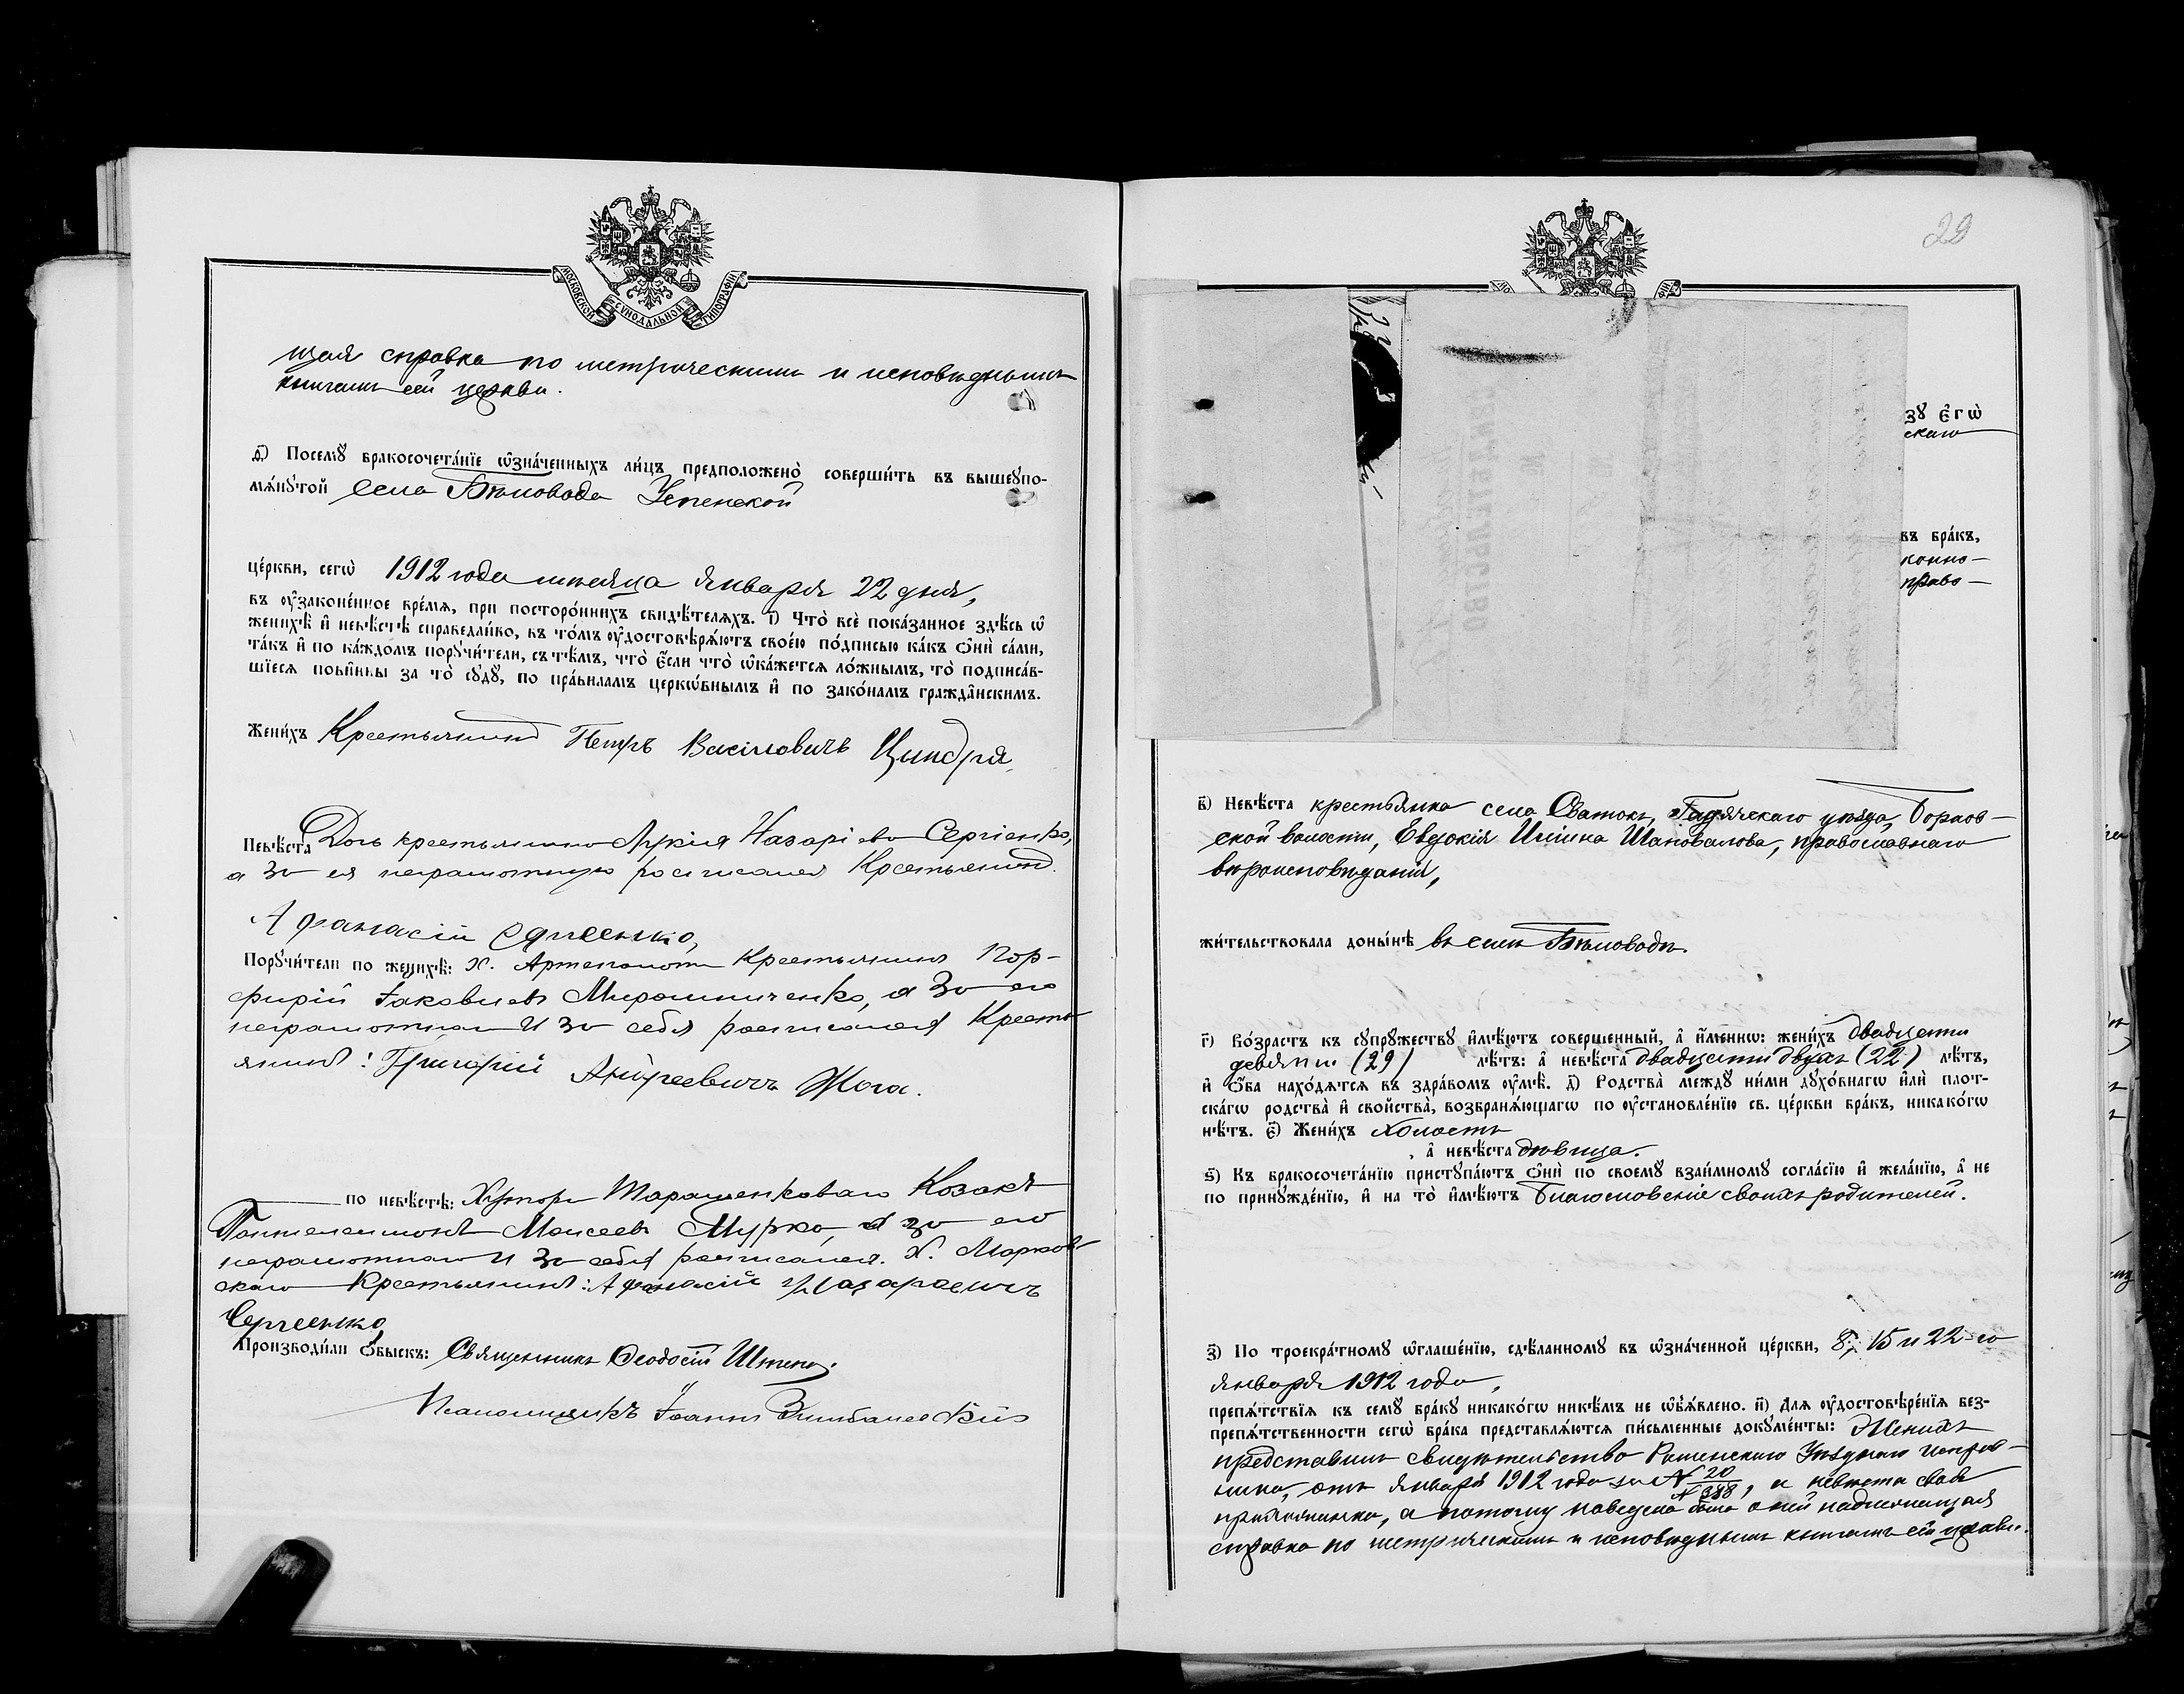 МОСКОВСКОЙ СѴНОДАЛЬНОЙ ТИПОГРАФІИ
щая справка по метрическимъ и исповѣднымъ
книгамъ сей церкви.
д҃) Посемꙋ̀ бракосочета́нїе ѡ҆зна́ченныхъ ли́цъ предположено̀ соверши́ть въ вышеꙋпо-
мѧ́нꙋтой села Бѣловода Успенской
це́ркви, сегѡ̀ 1912 года мѣсяца января 22 дня,
въ ᲂу҆законе́нное вре́мѧ, при посторо́ннихъ свидѣ́телѧхъ. і҃) Что̀ всѐ пока́занное здѣ́сь ѡ҆
женихѣ̀ и҆ невѣ́стѣ справедли́во, въ то́мъ ᲂу҆достовѣрѧ́ютъ свое́ю по́дписью ка́къ ѻ҆нѝ са́ми,
та́къ и҆ по ка́ждомъ порꙋчи́тели, съ тѣ́мъ, что̀ є҆́сли что̀ ѡ҆ка́жетсѧ ло́жнымъ, то̀ подписа́в-
шїесѧ пови́нны за то̀ сꙋдꙋ̀, по пра́виламъ церко́внымъ и҆ по зако́намъ гражда́нскимъ.
Жени́хъ Крестьянинъ Петръ Васіловичъ Циндря,
Невѣ́ста Дочь крестьянина Лукія Назаріева Сергіенко,
а за ея неграмотную росписался Крестьянинъ
Афанасій Сергиенко,
Порꙋчи́тели по женихѣ̀: Х. Крестьянинъ Пор-
фирій Іаковлевъ Мирошниченко, а за его
неграмотнаго и за себя росписался Кресть
янинъ: Григорій Андреевичъ Жога.
по невѣ́стѣ: Хутора Козакъ
Пантелеимонъ Моисеевъ Мурко, а за его
неграмотнаго и за себя росписался Х. Марков-
скаго Крестьянинъ: Афанасій Назараевичъ
Сергиенко,
Производи́ли ѻ҆́быскъ: Священникъ Ѳеодосій
Псаломщикъ Іоаннъ
29
зꙋ є҆гѡ̀
скаго
въ бра́къ,
конно-
право-
в҃) Невѣ́ста крестьянка села Сватокъ, Гадячскаго уѣзда, Борков-
ской волости, Евдокія Шаповалова, православнаго
вѣроисповѣданія,
жи́тельствовала доны́нѣ въ селѣ Бѣловодѣ.
г҃) Во́зрастъ къ сꙋпрꙋ́жествꙋ и҆мѣ́ютъ соверше́нный, а҆ и҆́меннѡ: жени́хъ двадцати
девяти (29) лѣ́тъ: а҆ невѣ́ста двадцати двухъ (22) лѣ́тъ,
и҆ ѻ҆́ба нахо́дѧтсѧ въ здра́вомъ ᲂу҆мѣ̀. д҃) Родства̀ междꙋ ни́ми дꙋхо́внагѡ и҆лѝ плот-
ска́гѡ родства̀ и҆ свойства̀, возбранѧ́ющагѡ по ᲂу҆становле́нїю св. це́ркви бра́къ, никако́гѡ
нѣ́тъ. є҃) Жени́хъ холостъ
а҆ невѣ́ста дѣвица.
ѕ҃) Къ бракосочета́нїю пристꙋпа́ютъ ѻ҆нѝ по своемꙋ̀ взаи́мномꙋ согла́сїю и҆ жела́нїю, а҆ не
по принꙋжде́нїю, и҆ на то̀ и҆мѣ́ютъ благословеніе своихъ родителей.
з҃) По троекра́тномꙋ ѡ҆глаше́нїю, сдѣ́ланномꙋ въ ѡ҆зна́ченной це́ркви, 8, 15 и 22-го
января 1912 года,
препѧ́тствїѧ къ семꙋ̀ бра́кꙋ никако́гѡ никѣ́мъ не ѡ҆б̾ѧ́влено. и҃) Длѧ ᲂу҆достовѣре́нїѧ без-
препѧ́тственности сегѡ̀ бра́ка представлѧ́ютсѧ пи́сьменные докꙋме́нты: Женихъ
представилъ свидѣтельство Роменскаго Уѣзднаго исправ-
ника, отъ января 1912 года за № 20/№ 388, а невѣста своя
прихожанка, а потому наведена была о ней надлежащая
справка по метрическимъ и исповѣднымъ книгамъ сей церкви.